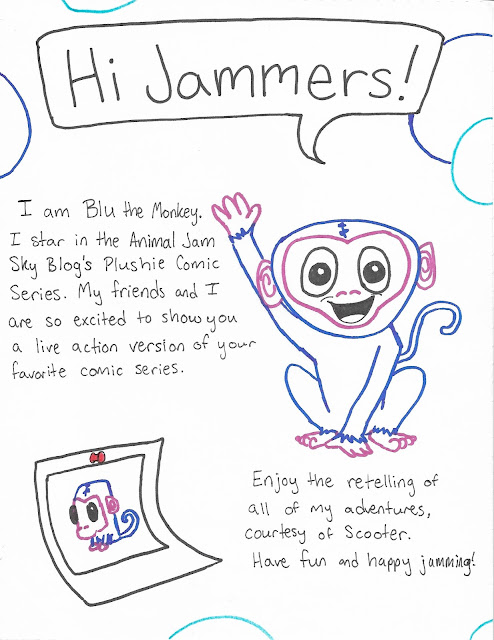 Hi Jammers!
I am Blu the Monkey.
I star in the Animal Jam
Sky Blog's Plushie Comic
Series. My friends and I
are so excited to show you
a live action version of your
favorite comic series.
Enjoy the retelling of
all of my adventures,
courtesy of Scooter.
Have fun and happy jamming!